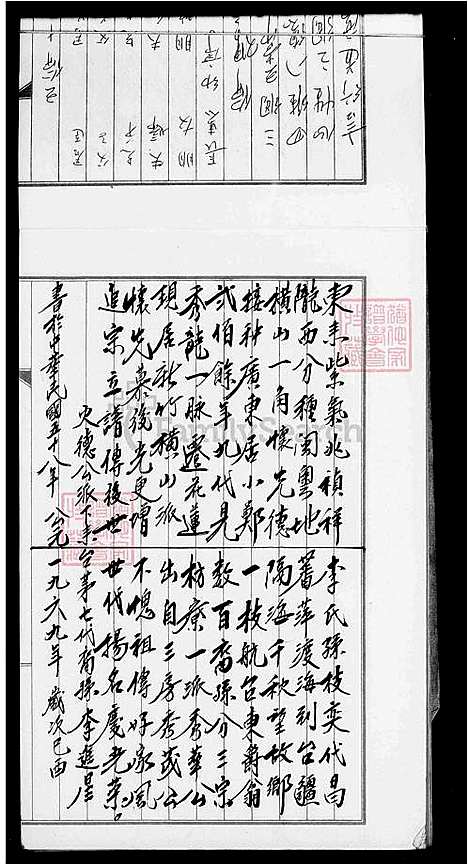 東來紫氣兆禎祥 李氏孫枝奕代昌
隴西分種閩粵地 蓄萍渡海到台疆
橫山一角懷先德 隔海千秋望故鄉
接种廣東居小鄭 一枝航台東爵翁
弍伯餘年九代見 数百裔孫分三宗
秀龍一脉遷花蓮 枋寮一派秀華公
現居新竹橫山派 出自三房秀茂公
懷先慕後光更增 不愧祖傳好家風
追宗立譜傳後世 世代揚名慶光榮。
火德公派下來台第七代裔孫李進星
書於中華民國五十八年 公元一九六九年 歲次己酉
FamilySearch